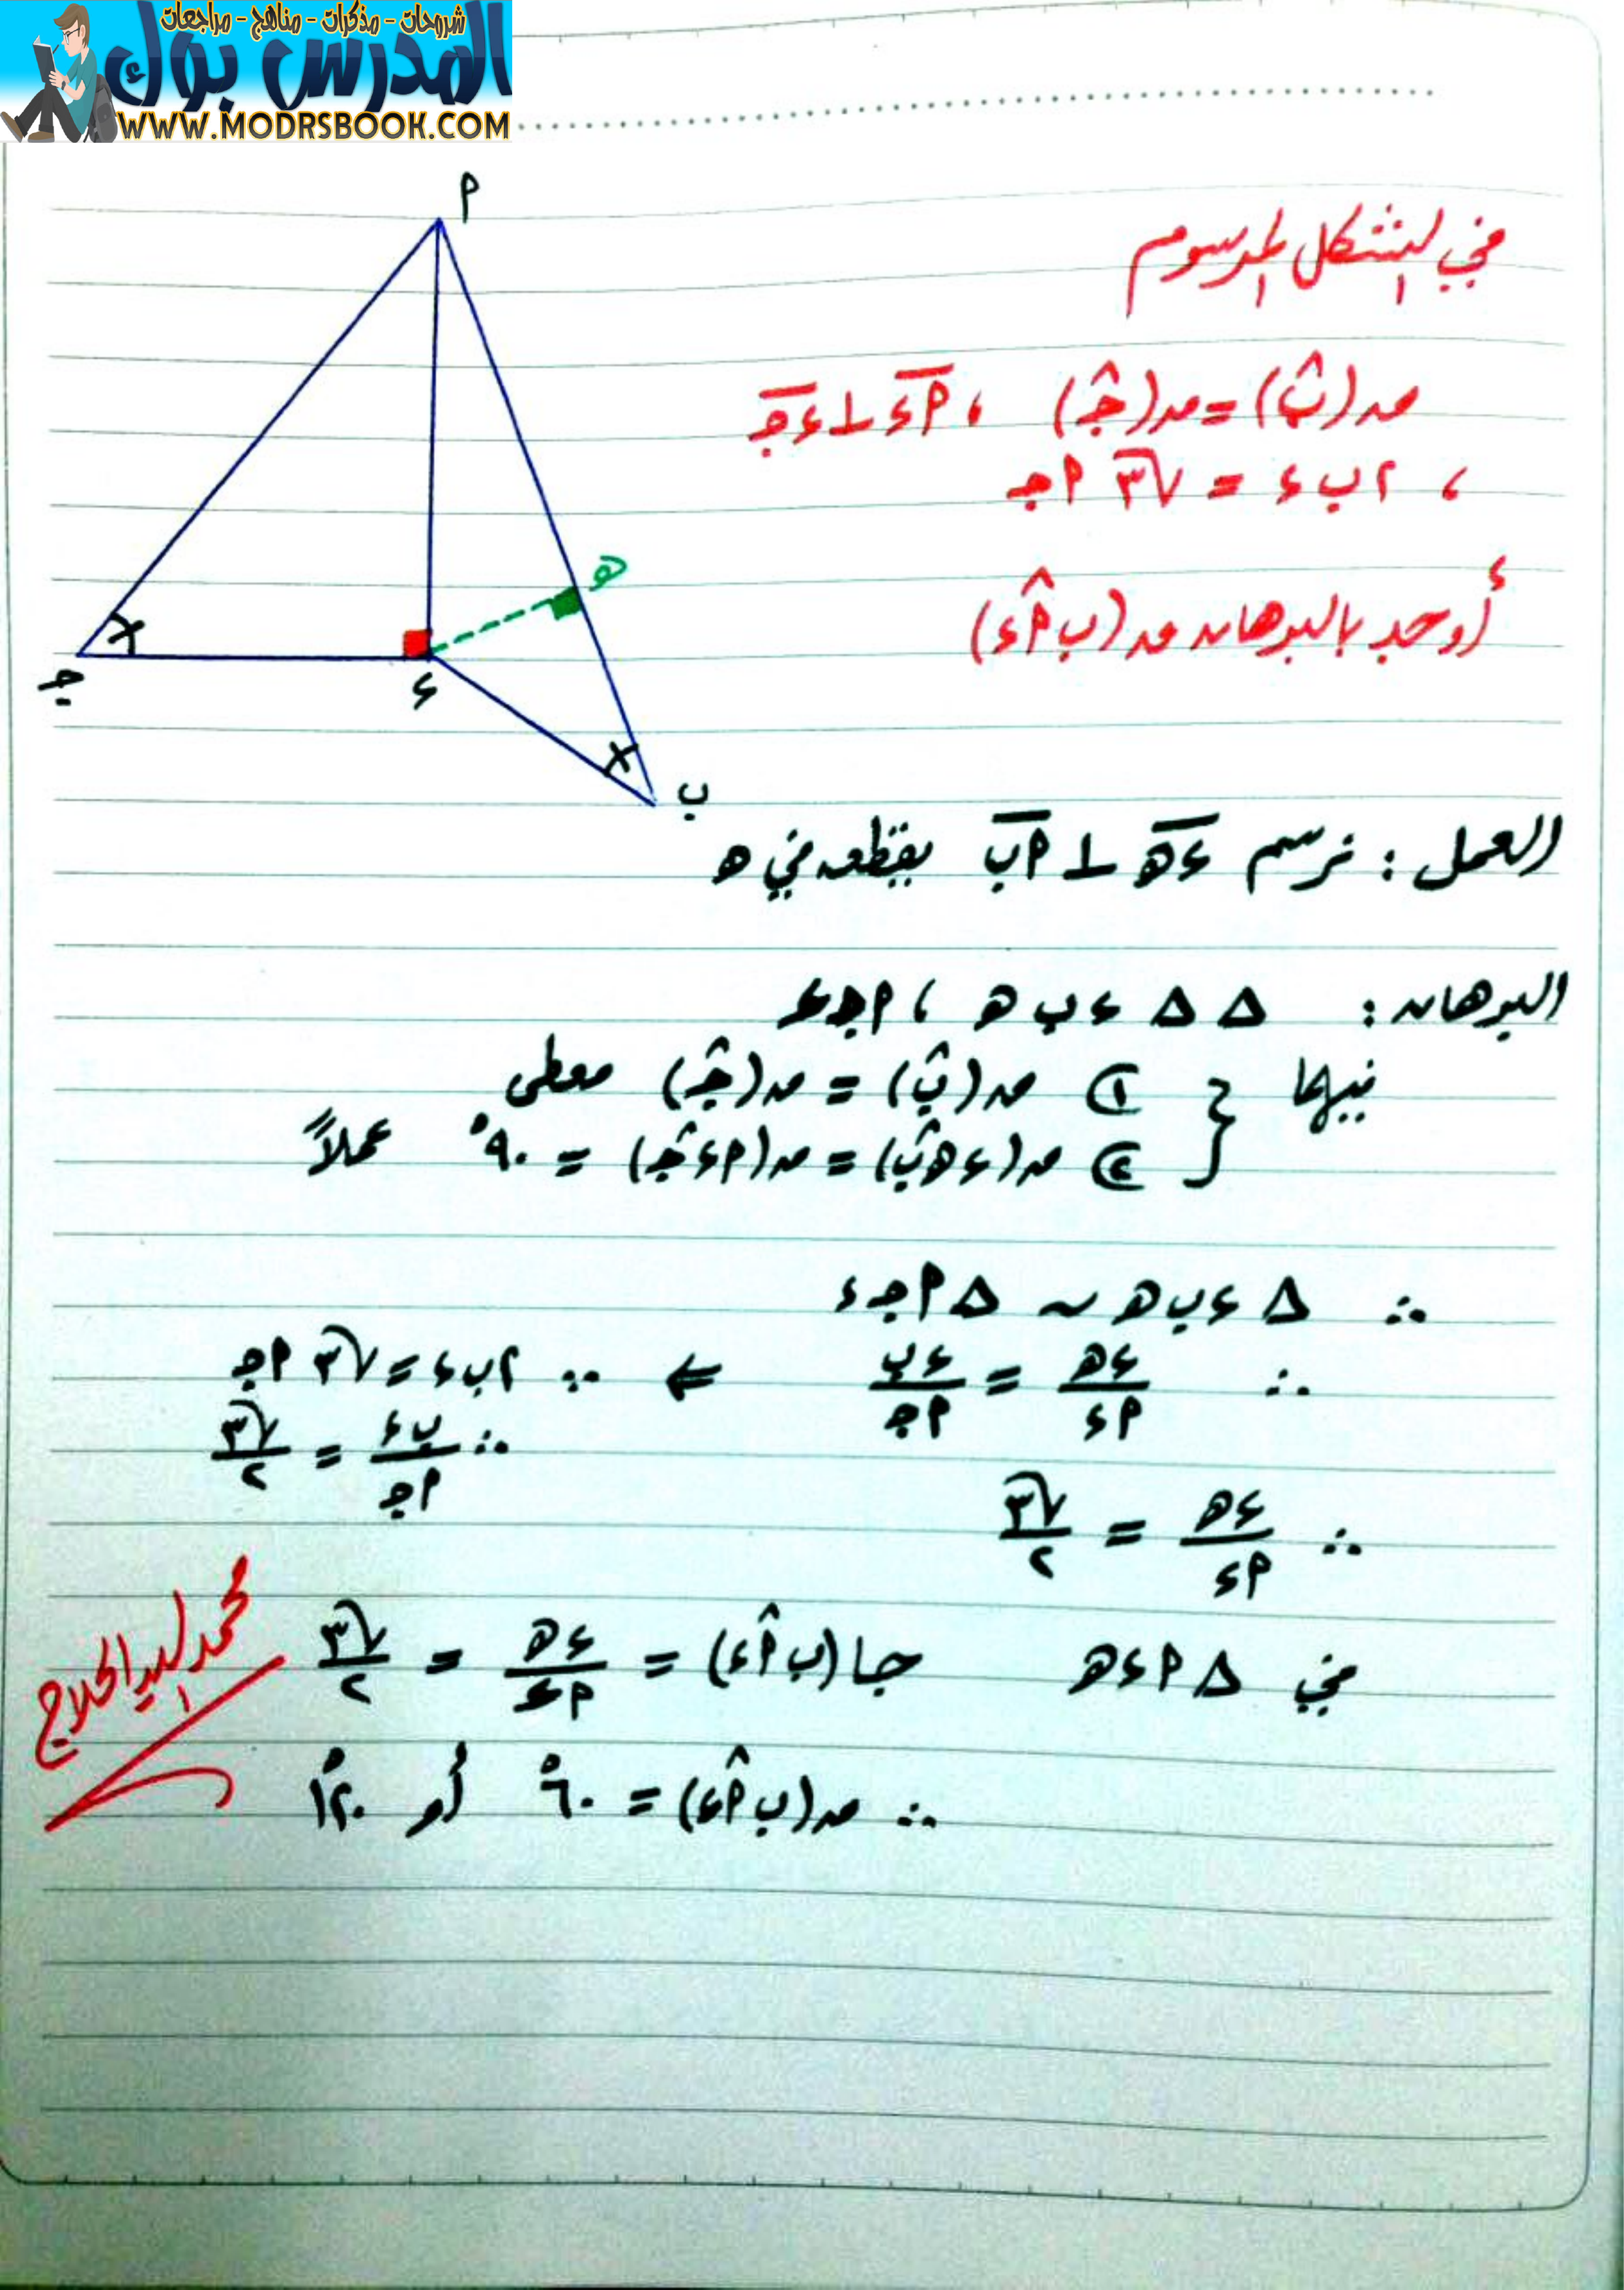 شروحات - مذكرات - مناهج - مراجعات
المدرس بوك
WWW.MODRSBOOK.COM
في الشكل المرسوم
ق(ب̂) = ق(ج̂) ، أء ⊥ ءج
، ٢ ب ء = √٣ أج
أوجد بالبرهان ق(ب أ̂ ء)
أ
هـ
ء
ج
ب
العمل : نرسم ءهـ ⊥ أب يقطعه في هـ
البرهان : ∆ ∆ ء ب هـ ، أ ج ء
فيهما { ① ق(ب̂) = ق(ج̂) معطى
② ق(ء هـ̂ ب) = ق(أ ء̂ ج) = ٩٠° عملاً
∴ ∆ ء ب هـ ~ ∆ أ ج ء
∴ ءهـ/أء = ءب/أج ⇐ ∵ ٢ ب ء = √٣ أج
∴ ب ء/أج = √٣/٢
∴ ءهـ/أء = √٣/٢
في ∆ أ ء هـ جا(ب أ̂ ء) = ءهـ/أء = √٣/٢
∴ ق(ب أ̂ ء) = ٦٠° أو ١٢٠°
محمد السيد الحلاج